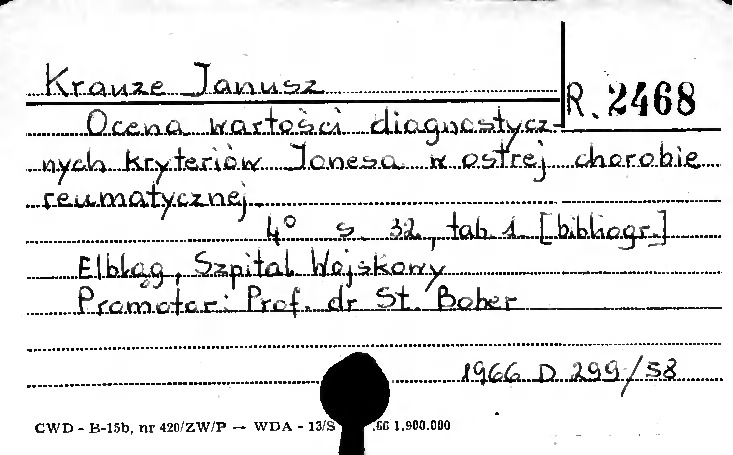 Krauze Janusz
R. 2468
Ocena wartości diagnostycz-
nych kryteriów Jonesa w ostrej chorobie
reumatycznej.
4° s. 32, tab. 1. [bibliogr.]
Elbląg, Szpital Wojskowy
Promotor: Prof. dr St. Bober
1966 D 299/58
CWD - B-15b, nr 420/ZW/P — WDA - 13/S .66 1.900.000